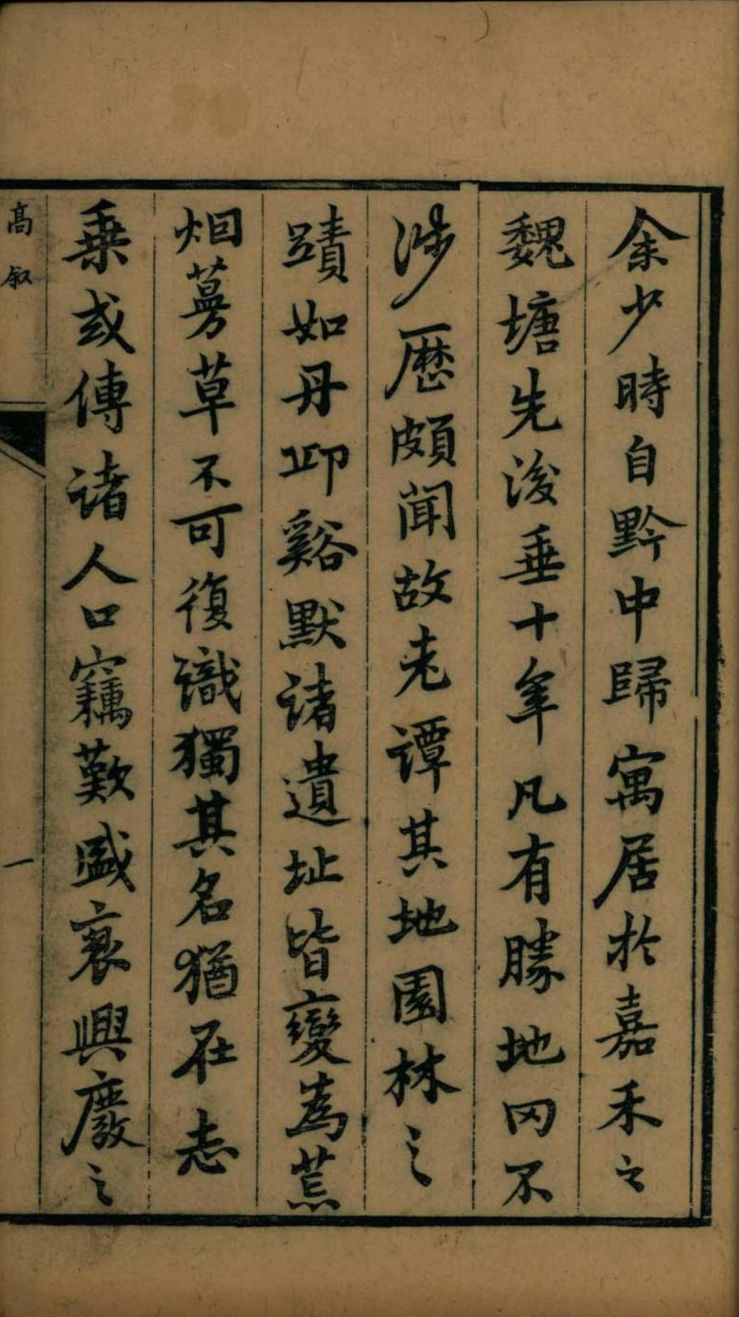 余少時自黔中歸寓居於嘉禾之
魏塘先後垂十年凡有勝地罔不
涉歷頗聞故老譚其地園林之
蹟如丹邱谿默諸遺址皆變為荒
烟蔓草不可復識獨其名猶在志
乘或傳諸人口竊歎盛衰興廢之
高叙
一